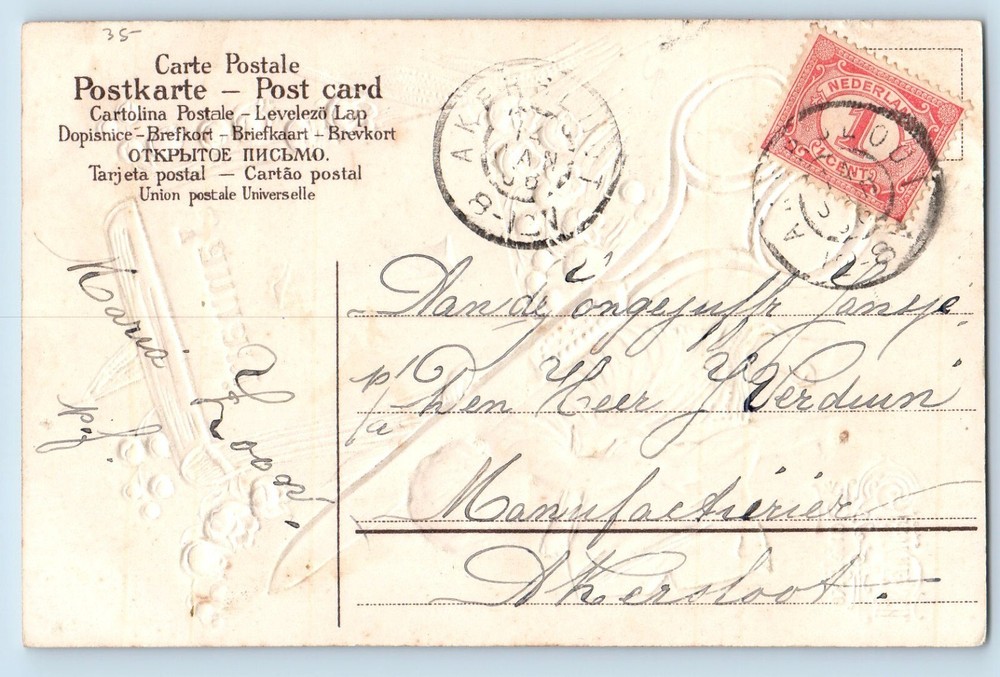 35-
Carte Postale
Postkarte – Post card
Cartolina Postale – Levelező Lap
Dopisnice – Brefkort – Briefkaart – Brevkort
ОТКРЫТОЕ ПИСЬМО.
Tarjeta postal – Cartão postal
Union postale Universelle
AKERSLOOT
14
JAN
8-10V
NEDERLAND
1
CENT
Aan de jongejuffr Jansje
p/a Den Heer J Verduin
Manufacturier
Akersloot.
Maria